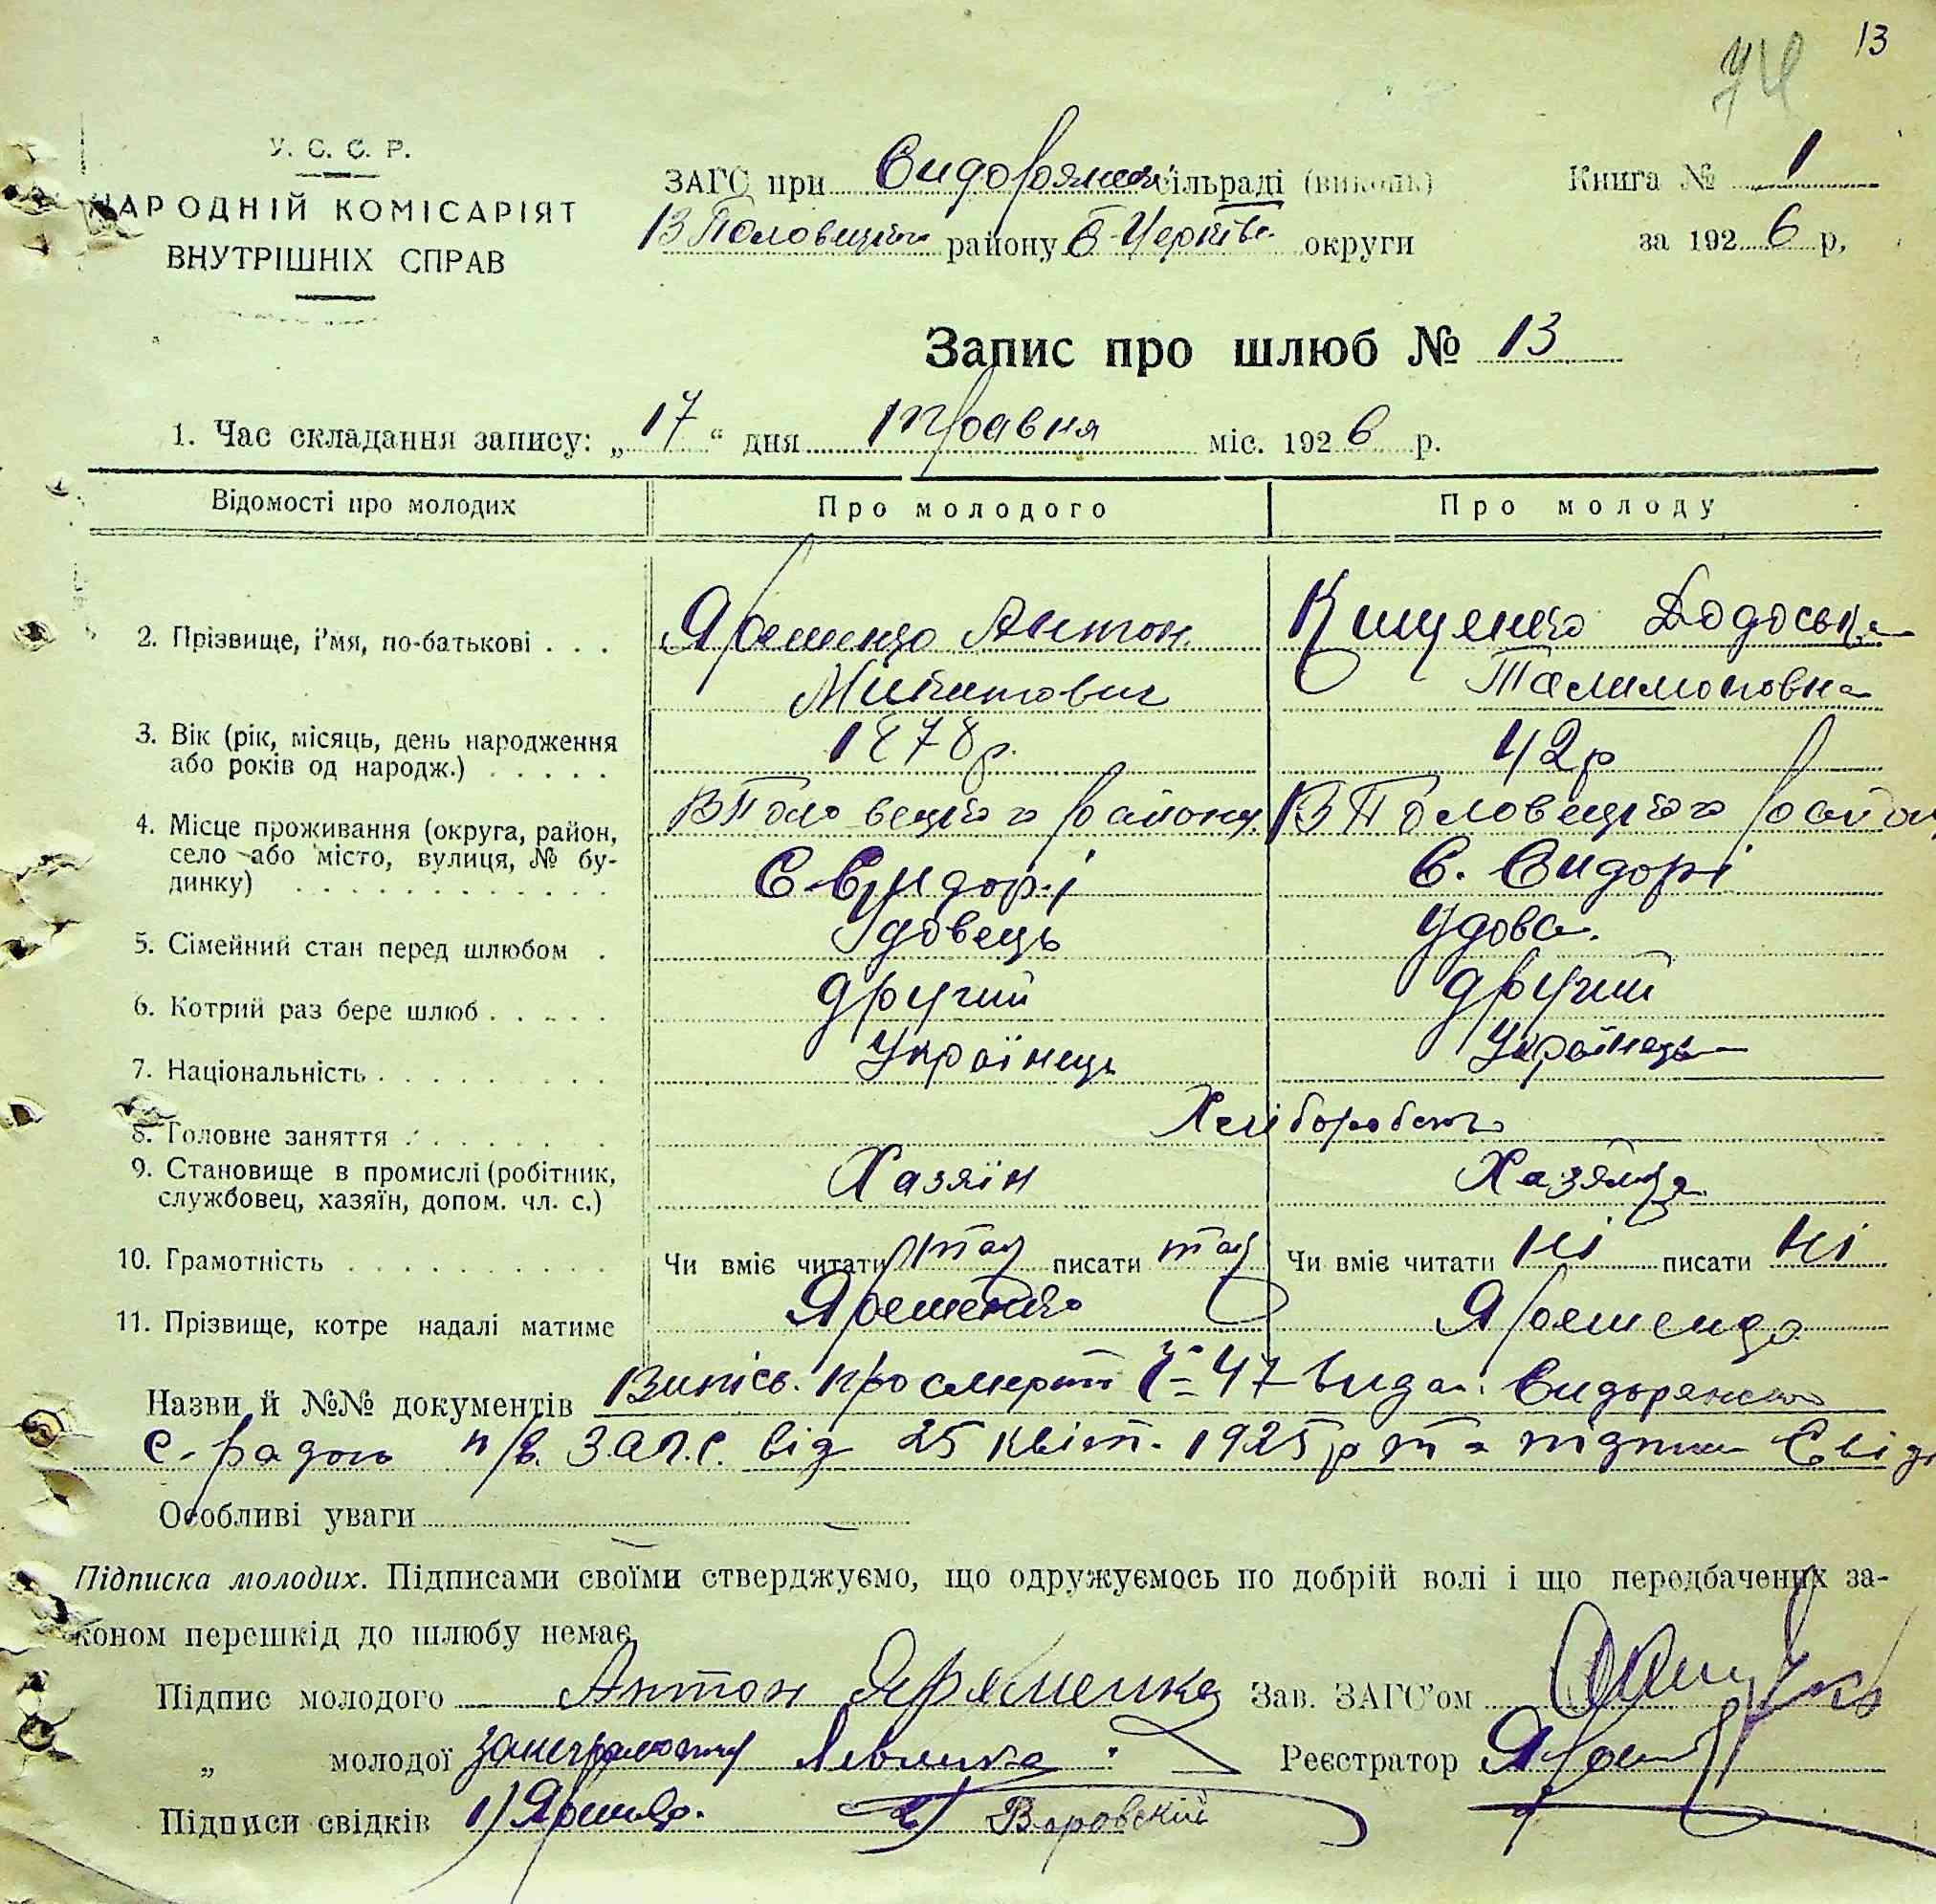 13
74
У. С. С. Р.
НАРОДНІЙ КОМІСАРІЯТ
ВНУТРІШНІХ СПРАВ
ЗАГС при Сидорянск сільраді (виконк)
В Половецького району Б-Церківс. округи
Книга № 1
за 1926 р.
Запис про шлюб № 13
1. Час складання запису: „17“ дня Травня міс. 1926 р.
Відомості про молодих
Про молодого
Про молоду
2. Прізвище, і'мя, по-батькові . . .
Яременко Антон
Микитович
Кищенко Додоська
Талимоновна
3. Вік (рік, місяць, день народження
або років од народж.) . . . . .
1878 р.
42 р
4. Місце проживання (округа, район,
село або місто, вулиця, № бу-
динку) . . . . . . . . . . . .
В Половецького району
С. Сидорі
В Половецького району
С. Сидорі
5. Сімейний стан перед шлюбом .
Удовець
Удова.
6. Котрий раз бере шлюб . . . . .
другий
другий
7. Національність . . . . . . . . .
Українець
Українець
8. Головне заняття . . . . . . . .
Хліборобство
9. Становище в промислі (робітник,
службовец, хазяїн, допом. чл. с.)
Хазяїн
Хазяйка
10. Грамотність . . . . . . . . . .
Чи вміє читати так писати так
Чи вміє читати ні писати ні
11. Прізвище, котре надалі матиме
Яременко
Яременко
Назви й №№ документів Випись про смерть № 47 видан. Сидорянською
с. радою п/в. З.А.Г.С. від 25 квіт. 1925 р та підписи Свід
Особливі уваги
Підписка молодих. Підписами своїми стверджуємо, що одружуємось по добрій волі і що передбачених за-
коном перешкід до шлюбу немає
Підпис молодого Антон Яременко Зав. ЗАГС'ом
„ молодої занеграмотну Реєстратор
Підписи свідків 1) 2) Варовский